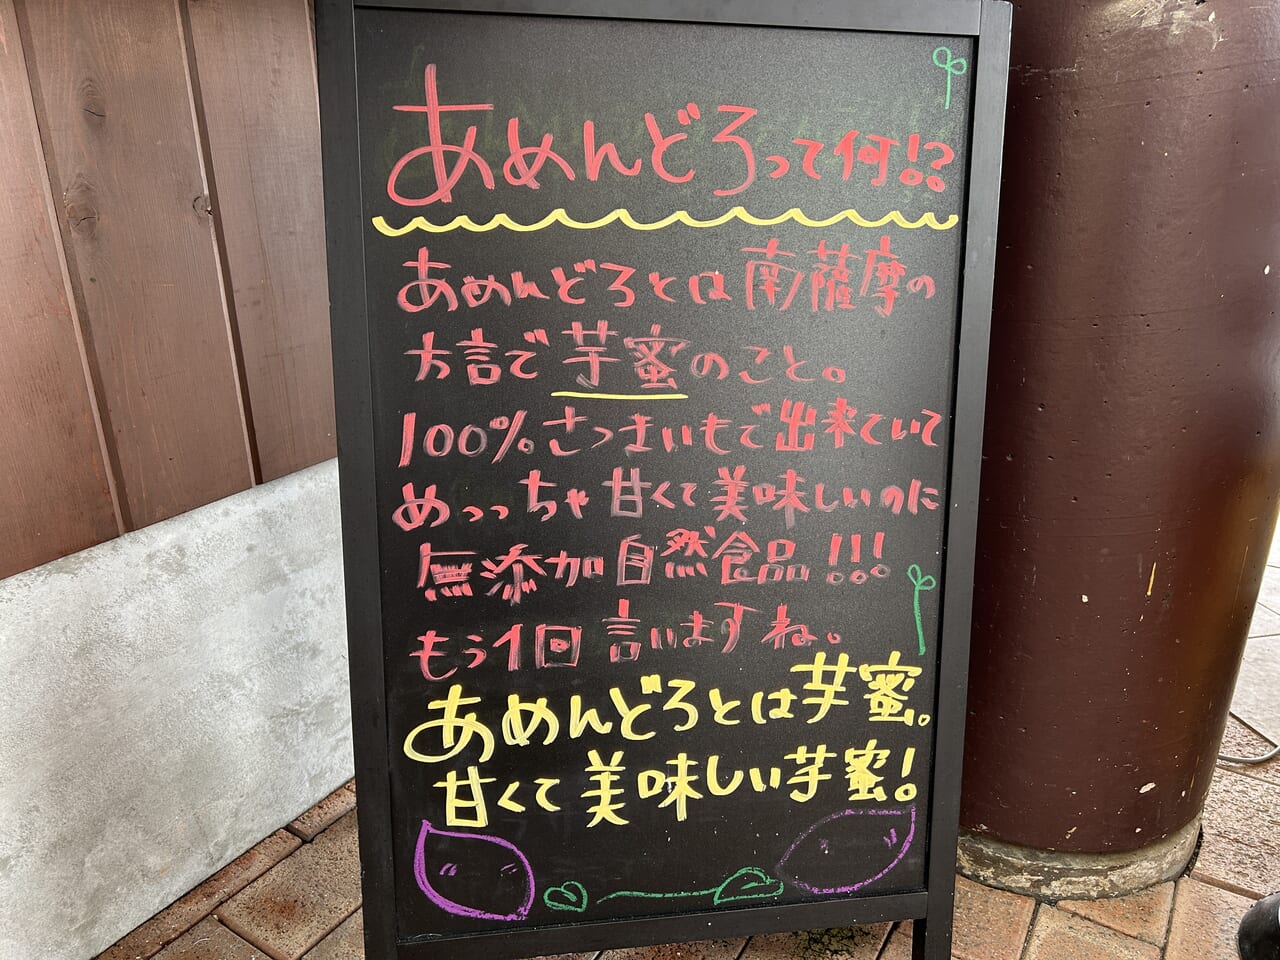 あめんどろって何!?
あめんどろとは南薩摩の
方言で芋蜜のこと。
100%さつまいもで出来ていて
めっっちゃ甘くて美味しいのに
無添加自然食品!!!
もう1回言いますね。
あめんどろとは芋蜜。
甘くて美味しい芋蜜!